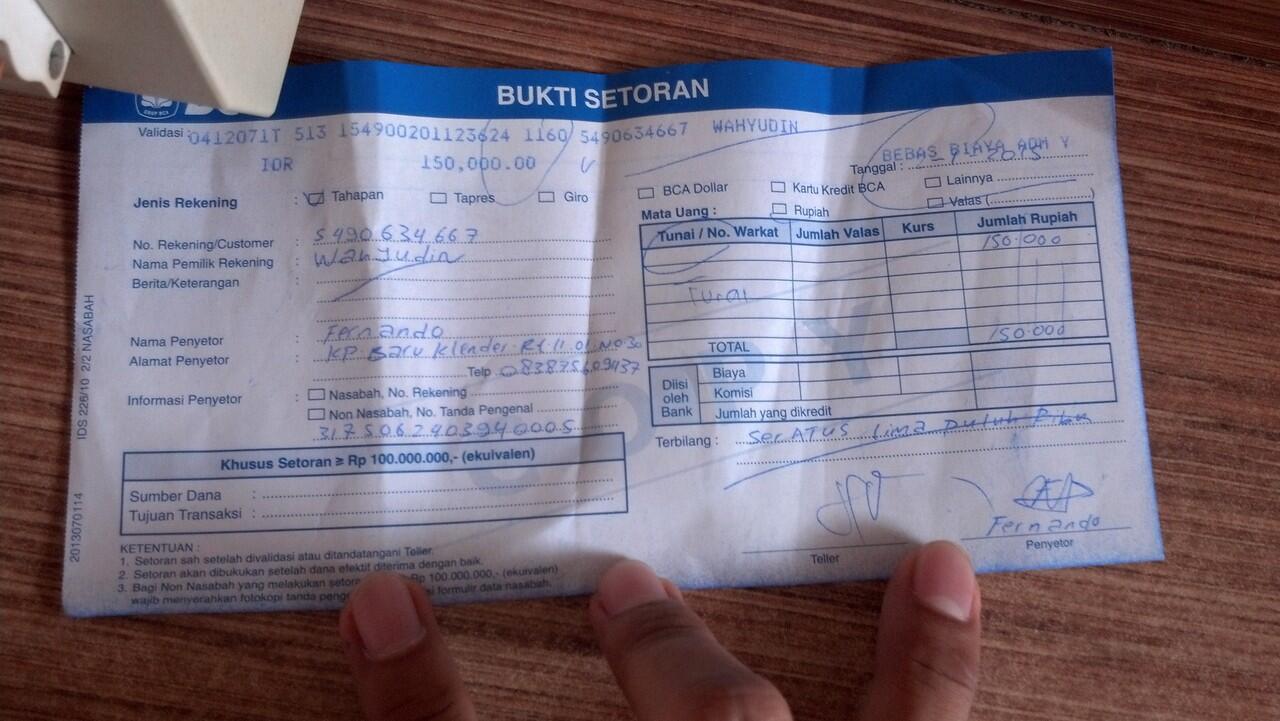 BUKTI SETORAN
Validasi : 0412071T 513 154900201123624 1160 5490634667 WAHYUDIN
IDR 150,000.00 V BEBAS BIAYA ADM Y
Tanggal : 2015
Jenis Rekening : Tahapan Tapres Giro
BCA Dollar Kartu Kredit BCA Lainnya
Mata Uang : Rupiah Valas (
No. Rekening/Customer : 5490634667
Nama Pemilik Rekening : Wahyudin
Berita/Keterangan :
Tunai / No. Warkat Jumlah Valas Kurs Jumlah Rupiah
150.000
Tunai
150.000
TOTAL
Nama Penyetor : Fernando
Alamat Penyetor : KP Baru Klender Rt 11 01 No 30
Telp
Informasi Penyetor : Nasabah, No. Rekening
Non Nasabah, No. Tanda Pengenal
3175062403940005
Diisi oleh Bank
Biaya
Komisi
Jumlah yang dikredit
Terbilang : SerATUS Lima Puluh Ribu
Khusus Setoran ≥ Rp 100.000.000,- (ekuivalen)
Sumber Dana :
Tujuan Transaksi :
COPY
Teller
Fernando
Penyetor
KETENTUAN :
1. Setoran sah setelah divalidasi atau ditandatangani Teller.
2. Setoran akan dibukukan setelah dana efektif diterima dengan baik.
3. Bagi Non Nasabah yang melakukan Rp 100.000.000,- (ekuivalen)
wajib menyerahkan fotokopi tanda formulir data nasabah.
IDS 226/10 2/2 NASABAH
2013070114